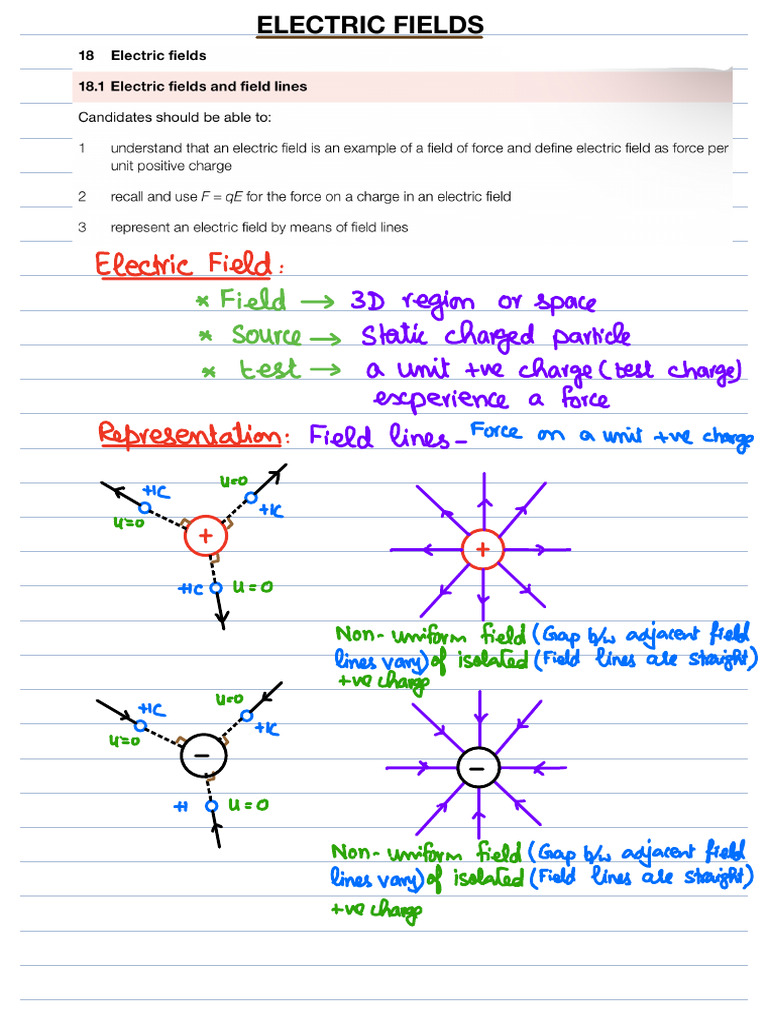 ELECTRIC FIELDS
18 Electric fields
18.1 Electric fields and field lines
Candidates should be able to:
1 understand that an electric field is an example of a field of force and define electric field as force per
unit positive charge
2 recall and use F = qE for the force on a charge in an electric field
3 represent an electric field by means of field lines
Electric Field:
* Field → 3D region or space
* Source → Static charged particle
* test → a unit +ve charge (test charge)
experience a force
Representation: Field lines - Force on a unit +ve charge
+1C u=0
u=0 +1C
+
+1C u=0
+
Non-uniform field (Gap b/w adjacent field
lines vary) of isolated (Field lines are straight)
+ve charge
+1C u=0
u=0 +1C
−
+1 u=0
−
Non-uniform field (Gap b/w adjacent field
lines vary) of isolated (Field lines are straight)
+ve charge